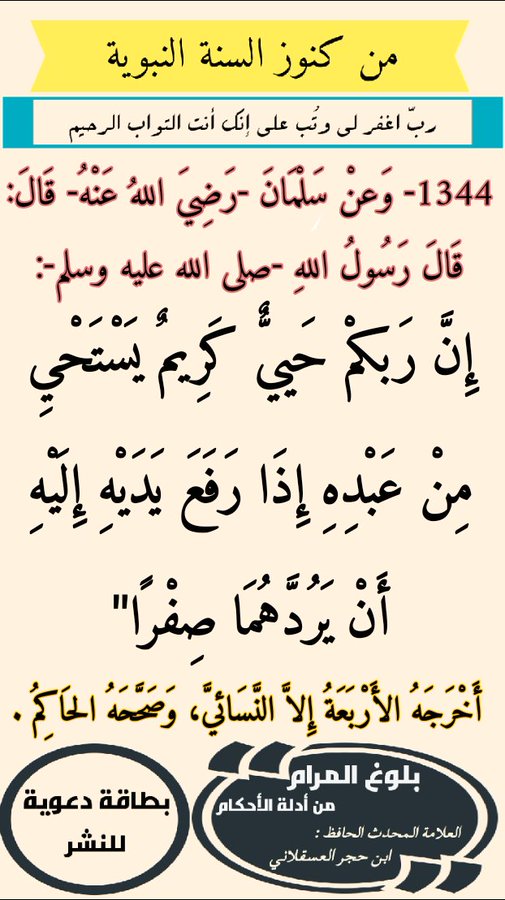 من كنوز السنة النبوية
ربّ اغفر لى وتُب على إنك أنت التواب الرحيم
1344- وَعنْ سَلْمَانَ -رَضِيَ اللهُ عَنْهُ- قَالَ:
قَالَ رَسُولُ اللهِ -صلى الله عليه وسلم-:
إِنَّ رَبكمْ حَييٌّ كَرِيمٌ يَسْتَحْيِ
مِنْ عَبْدِهِ إِذَا رَفَعَ يَدَيْهِ إِلَيْهِ
أَنْ يَرُدَّهُمَا صِفْرًا"
أَخْرَجَهُ الأَرْبَعَةُ إِلاَّ النَّسَائيَّ، وَصَحَّحَهُ الحَاكِمُ .
بلوغ المرام
من أدلة الأحكام
العلامة المحدث الحافظ :
ابن حجر العسقلاني
بطاقة دعوية
للنشر